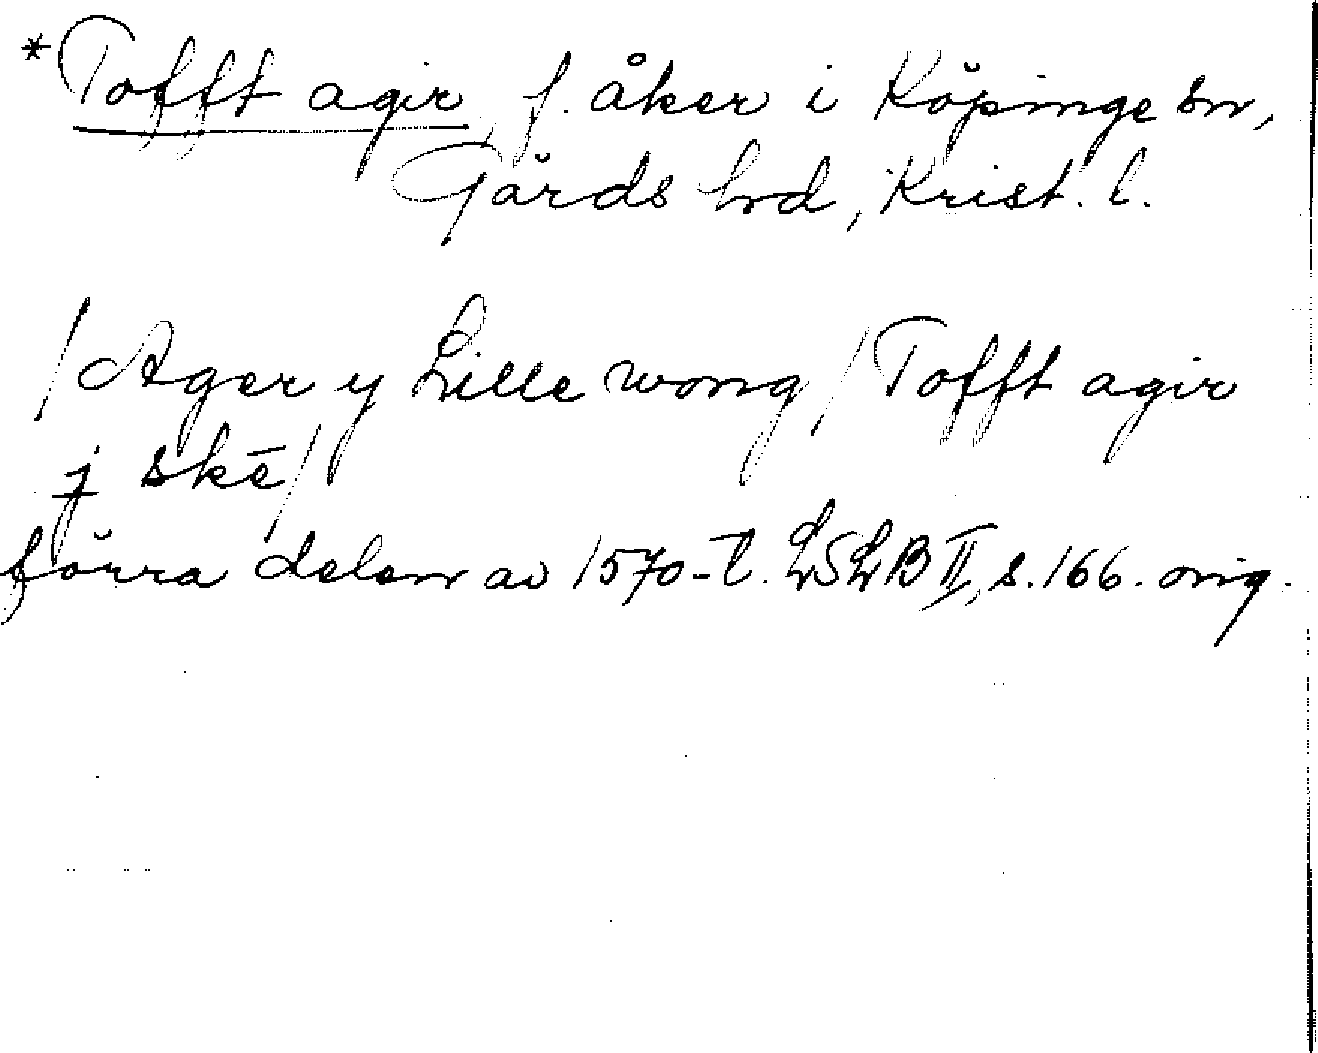 *Tofft agir, f. åker i Köpinge sn,
Gärds hd, Krist. l.
/Ager y Lille wong/ Tofft agir
j skē/
förra delen av 1570-t. LSLB II, s. 166. orig.